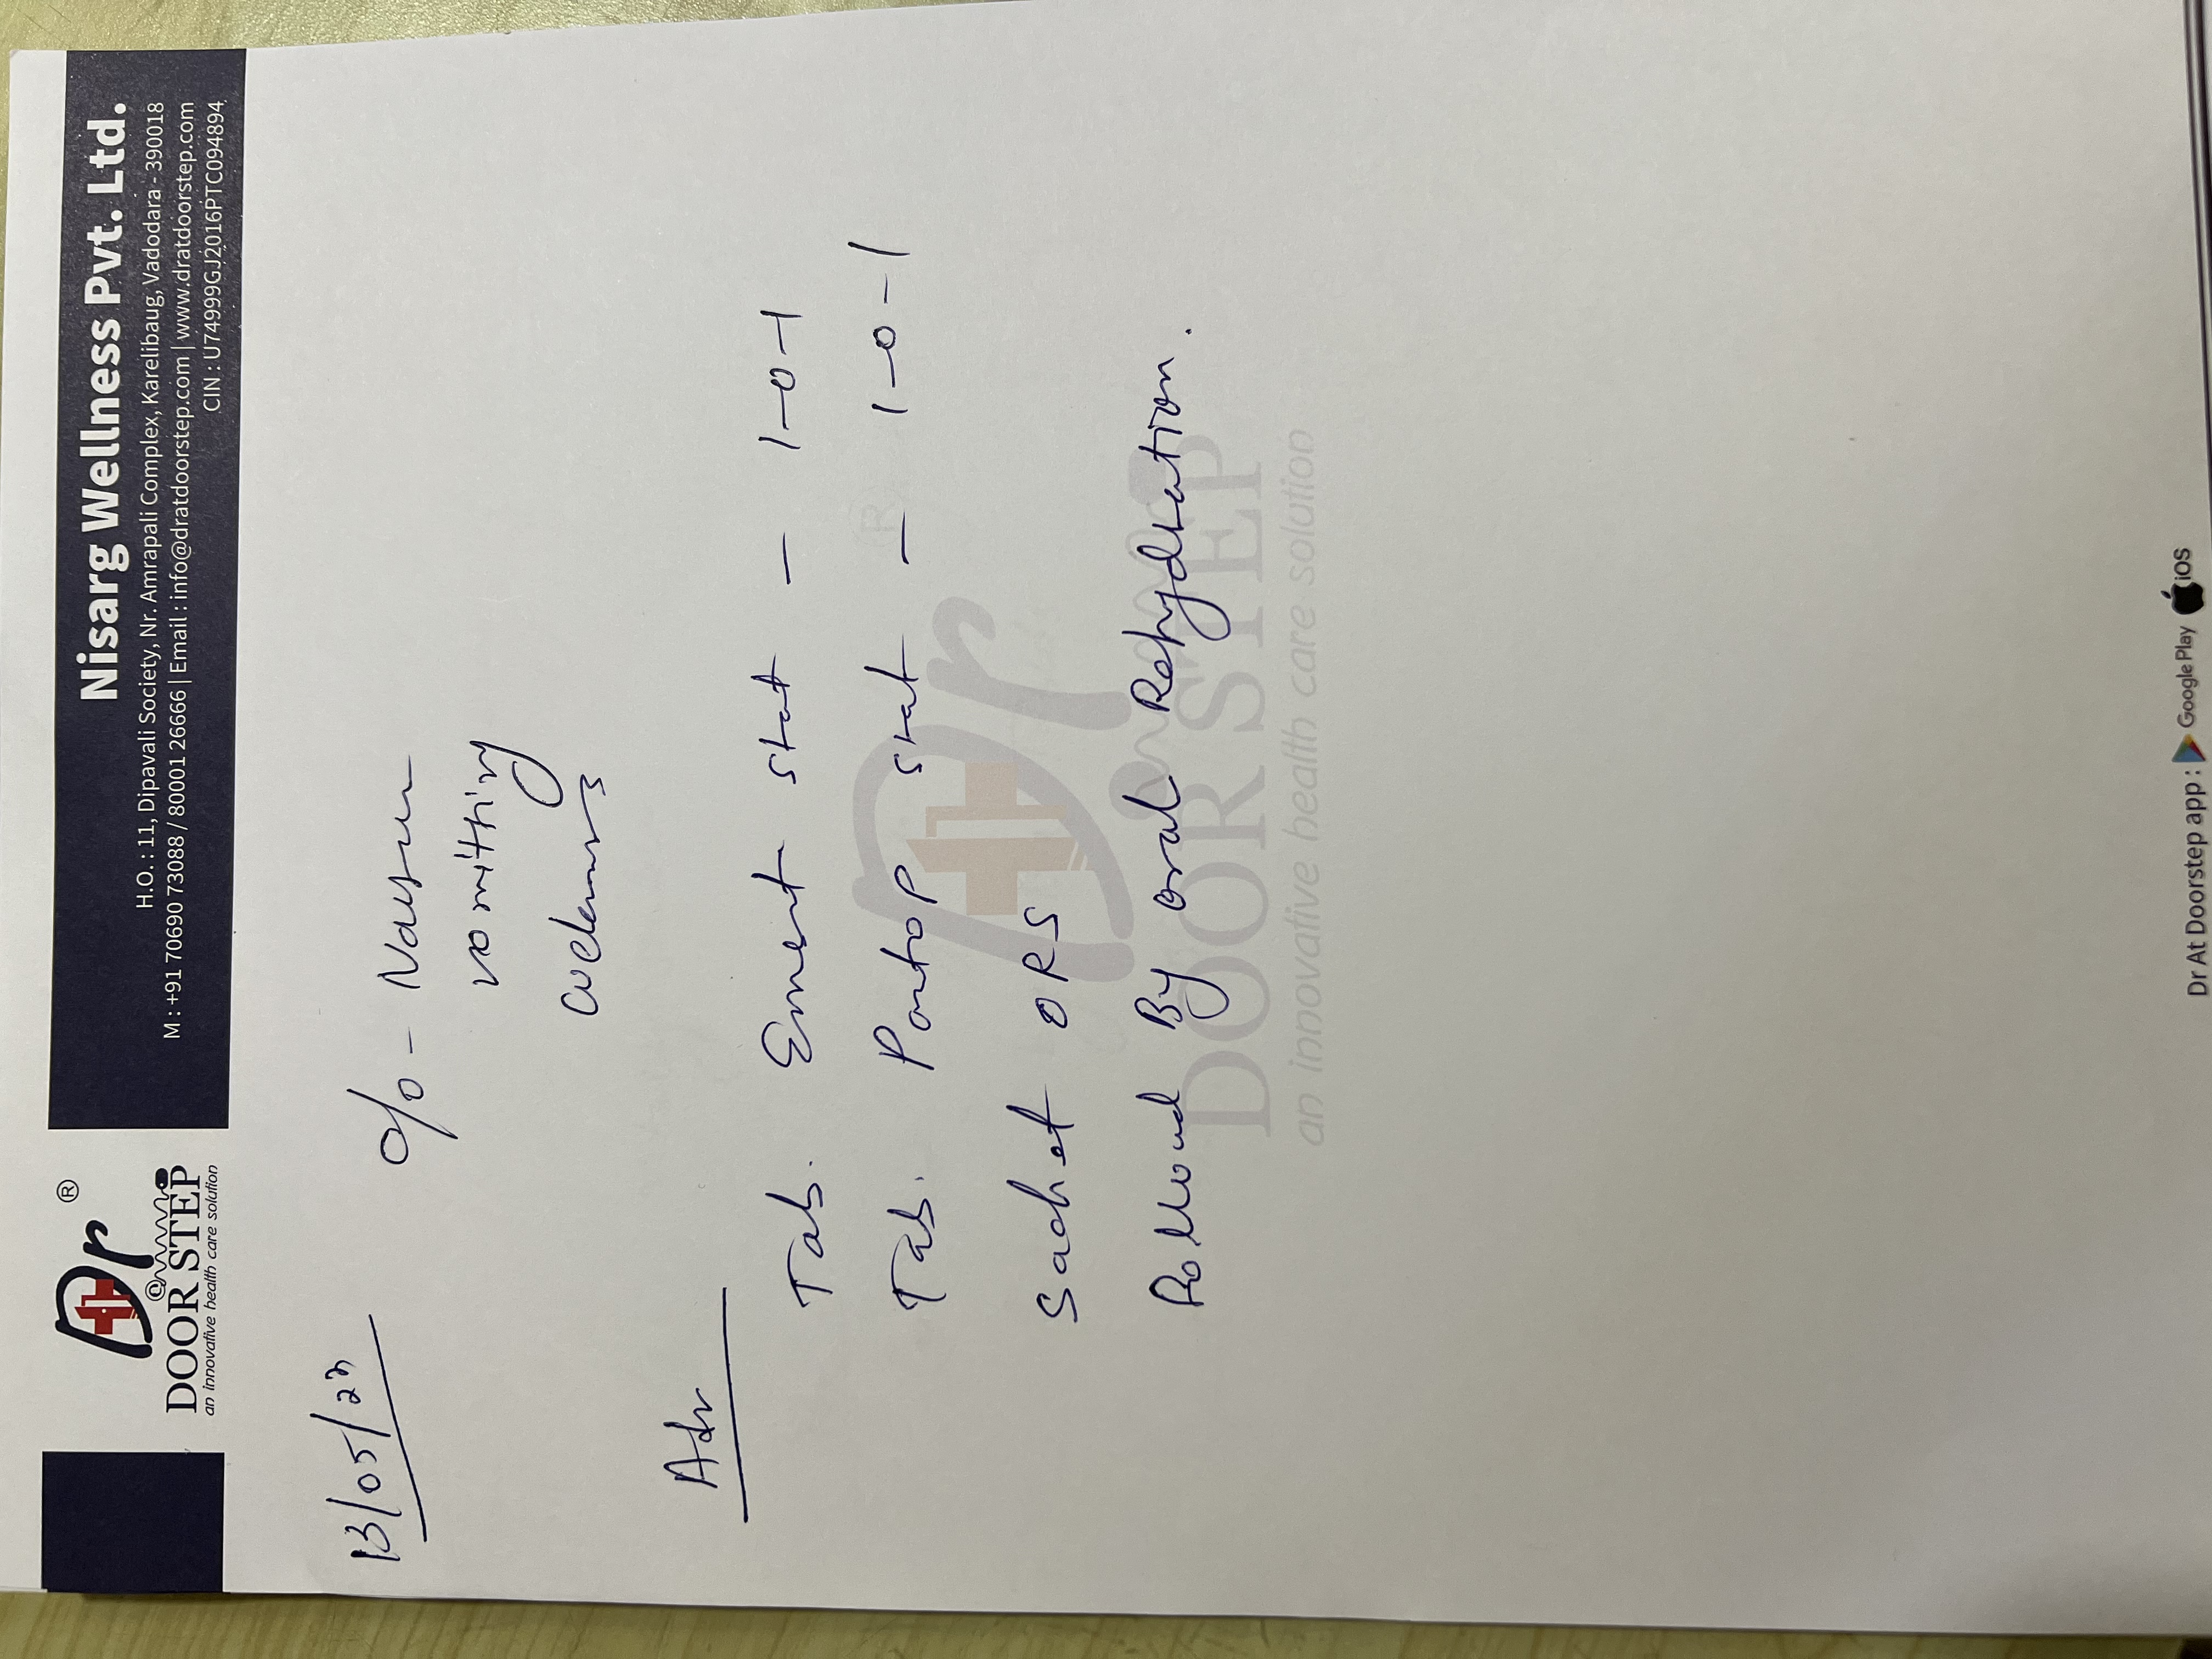 Dr ®
DOOR STEP
an innovative health care solution
Nisarg Wellness Pvt. Ltd.
H.O. : 11, Dipavali Society, Nr. Amrapali Complex, Karelibaug, Vadodara - 390018
M : +91 70690 73088 / 80001 26666 | Email : info@dratdoorstep.com | www.dratdoorstep.com
CIN : U74999GJ2016PTC094894
13/05/23
c/o - Nausea
vomitting
Adv
Tab. Emest stat - 1-0-1
Tab. Pantop stat - 1-0-1
Sachet ORS
By oral Rehydration.
Dr ®
DOOR STEP
an innovative health care solution
Dr At Doorstep app : Google Play iOS